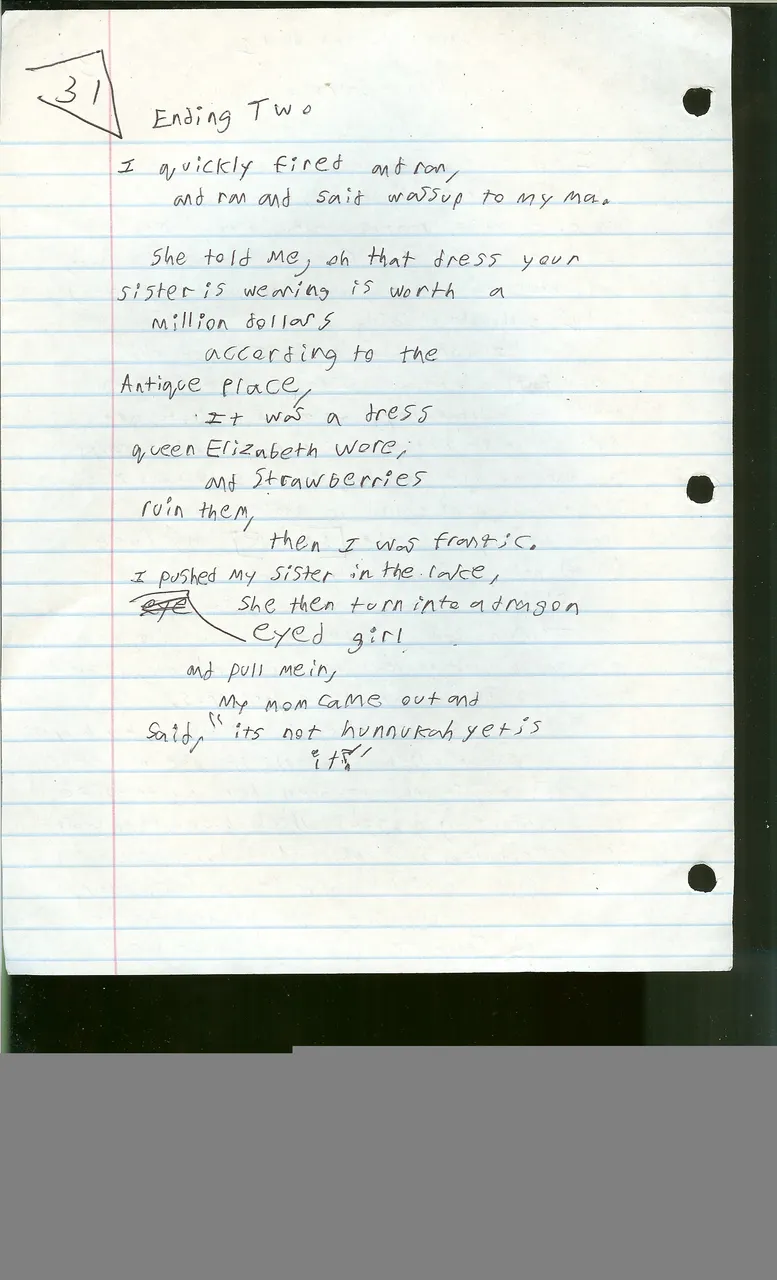 31
Ending Two
I quickly fired and ran,
and ran and said wassup to my ma.
She told me, oh that dress your
sister is wearing is worth a
million dollars
according to the
Antique place,
It was a dress
queen Elizabeth wore,
and Strawberries
ruin them,
then I was frantic.
I pushed my sister in the lake,
She then turn into a dragon
eyed girl
and pull me in,
My mom came out and
Said, "its not hunnukah yet is
it?"